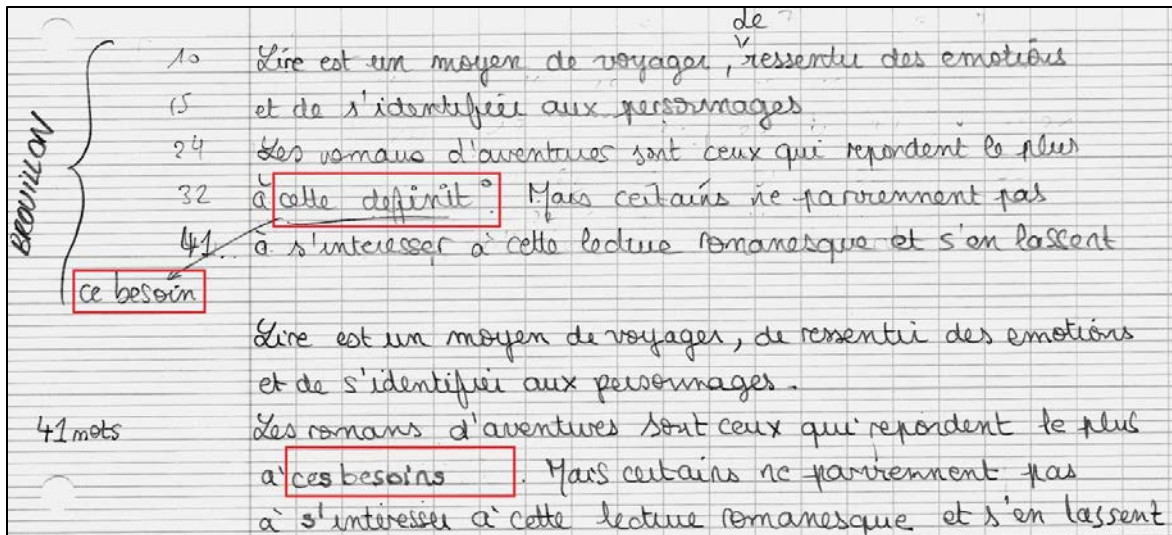 de
10 Lire est un moyen de voyager, ressentir des emotions
15 et de s'identifier aux personnages.
24 Les romans d'aventures sont ceux qui repondent le plus
32 à cette definit°. Mais certains ne parviennent pas
41 à s'interesser à cette lecture romanesque et s'en lassent
BROUILLON
ce besoin
Lire est un moyen de voyager, de ressentir des emotions
et de s'identifier aux personnages.
41 mots Les romans d'aventures sont ceux qui repondent le plus
à ces besoins. Mais certains ne parviennent pas
à s'intéresser à cette lecture romanesque et s'en lassent